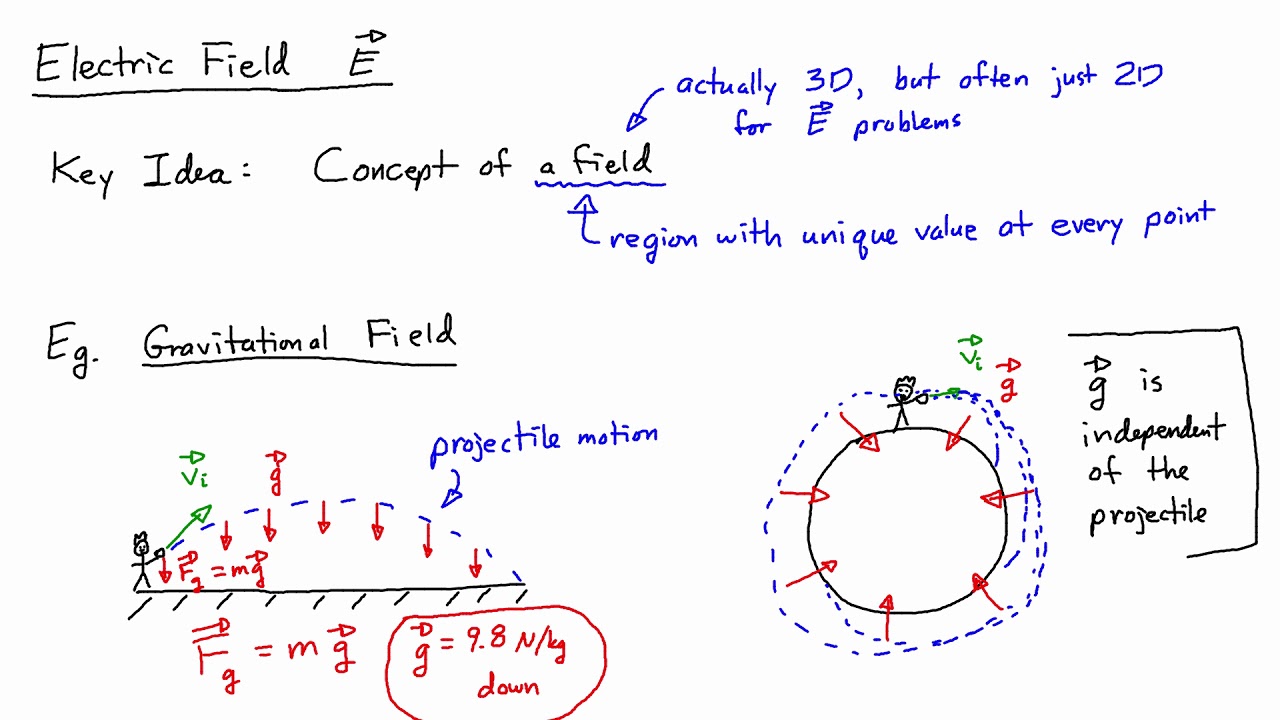 Electric Field E⃗
actually 3D, but often just 2D
for E⃗ problems
Key Idea: Concept of a field
region with unique value at every point
Eg. Gravitational Field
projectile motion
v⃗i
g⃗
F⃗g = mg⃗
F⃗g = m g⃗
g⃗ = 9.8 N/kg
down
v⃗i
g⃗
g⃗ is
independent
of the
projectile